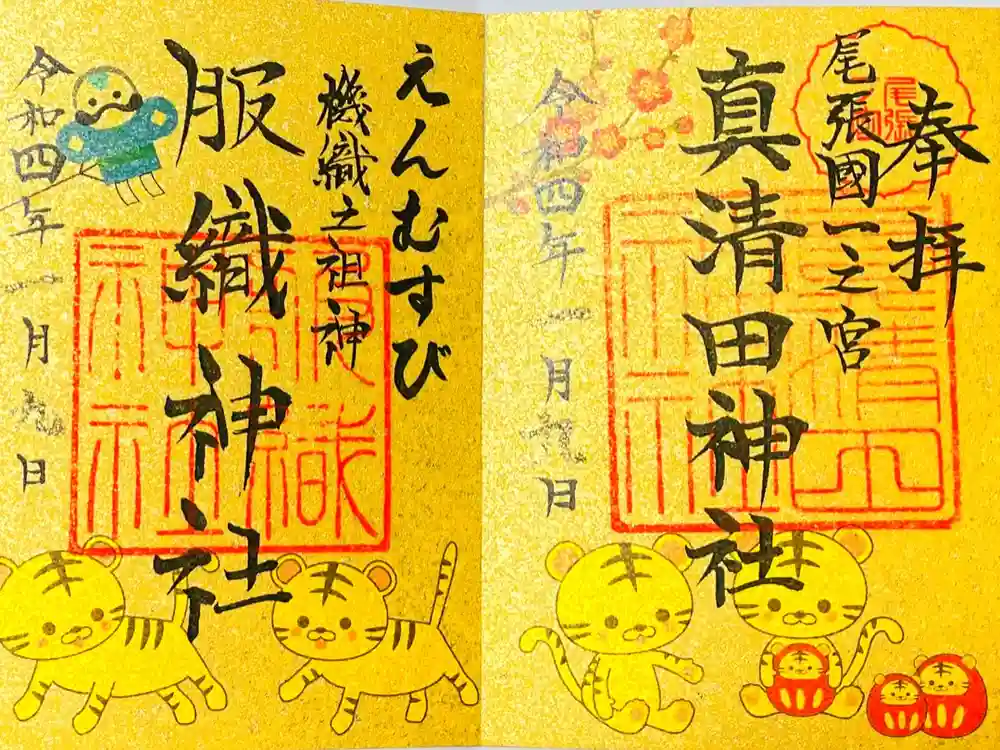 奉拝
尾張國一之宮
真清田神社
令和四年一月日
えんむすび
機織之祖神
服織神社
令和四年一月九日